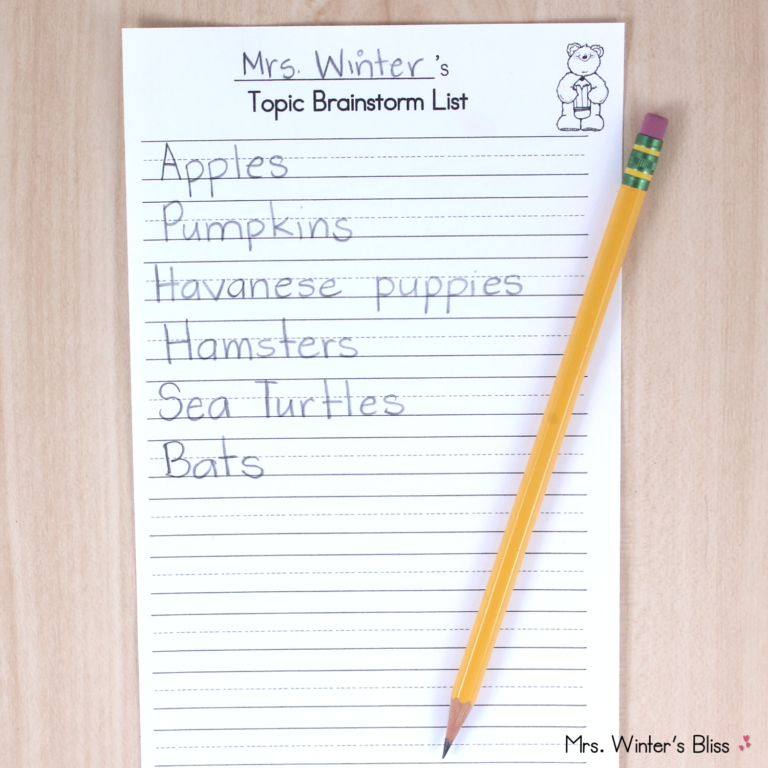 Mrs. Winter's
Topic Brainstorm List
Apples
Pumpkins
Havanese puppies
Hamsters
Sea Turtles
Bats
Mrs. Winter's Bliss